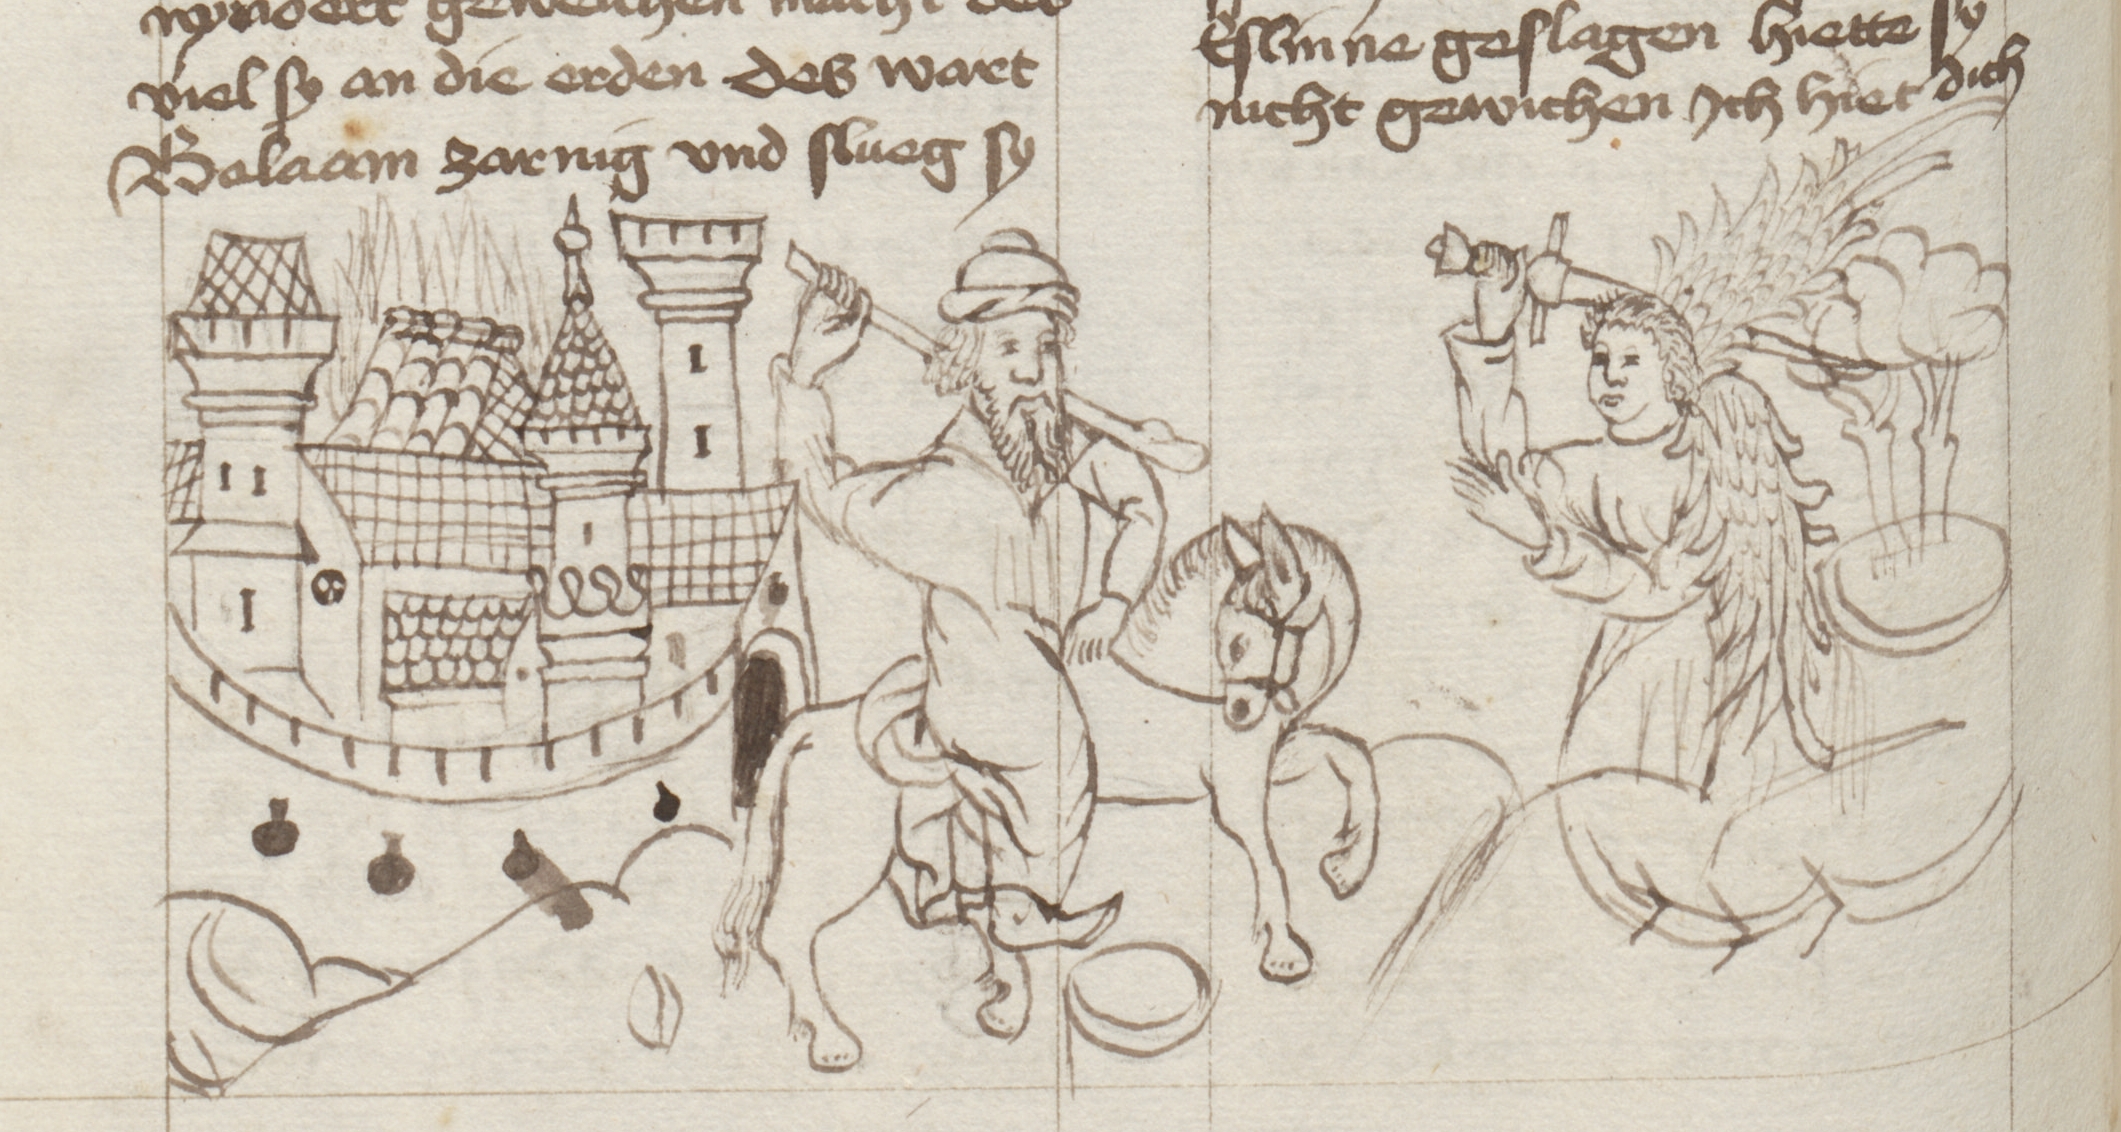 nyndert geweichen macht des
viel sy an die erden des wart
Balaam zarnig vnd slueg sy
Eslinne geslagen hiette sy
nicht gewichen Ich hiet dich